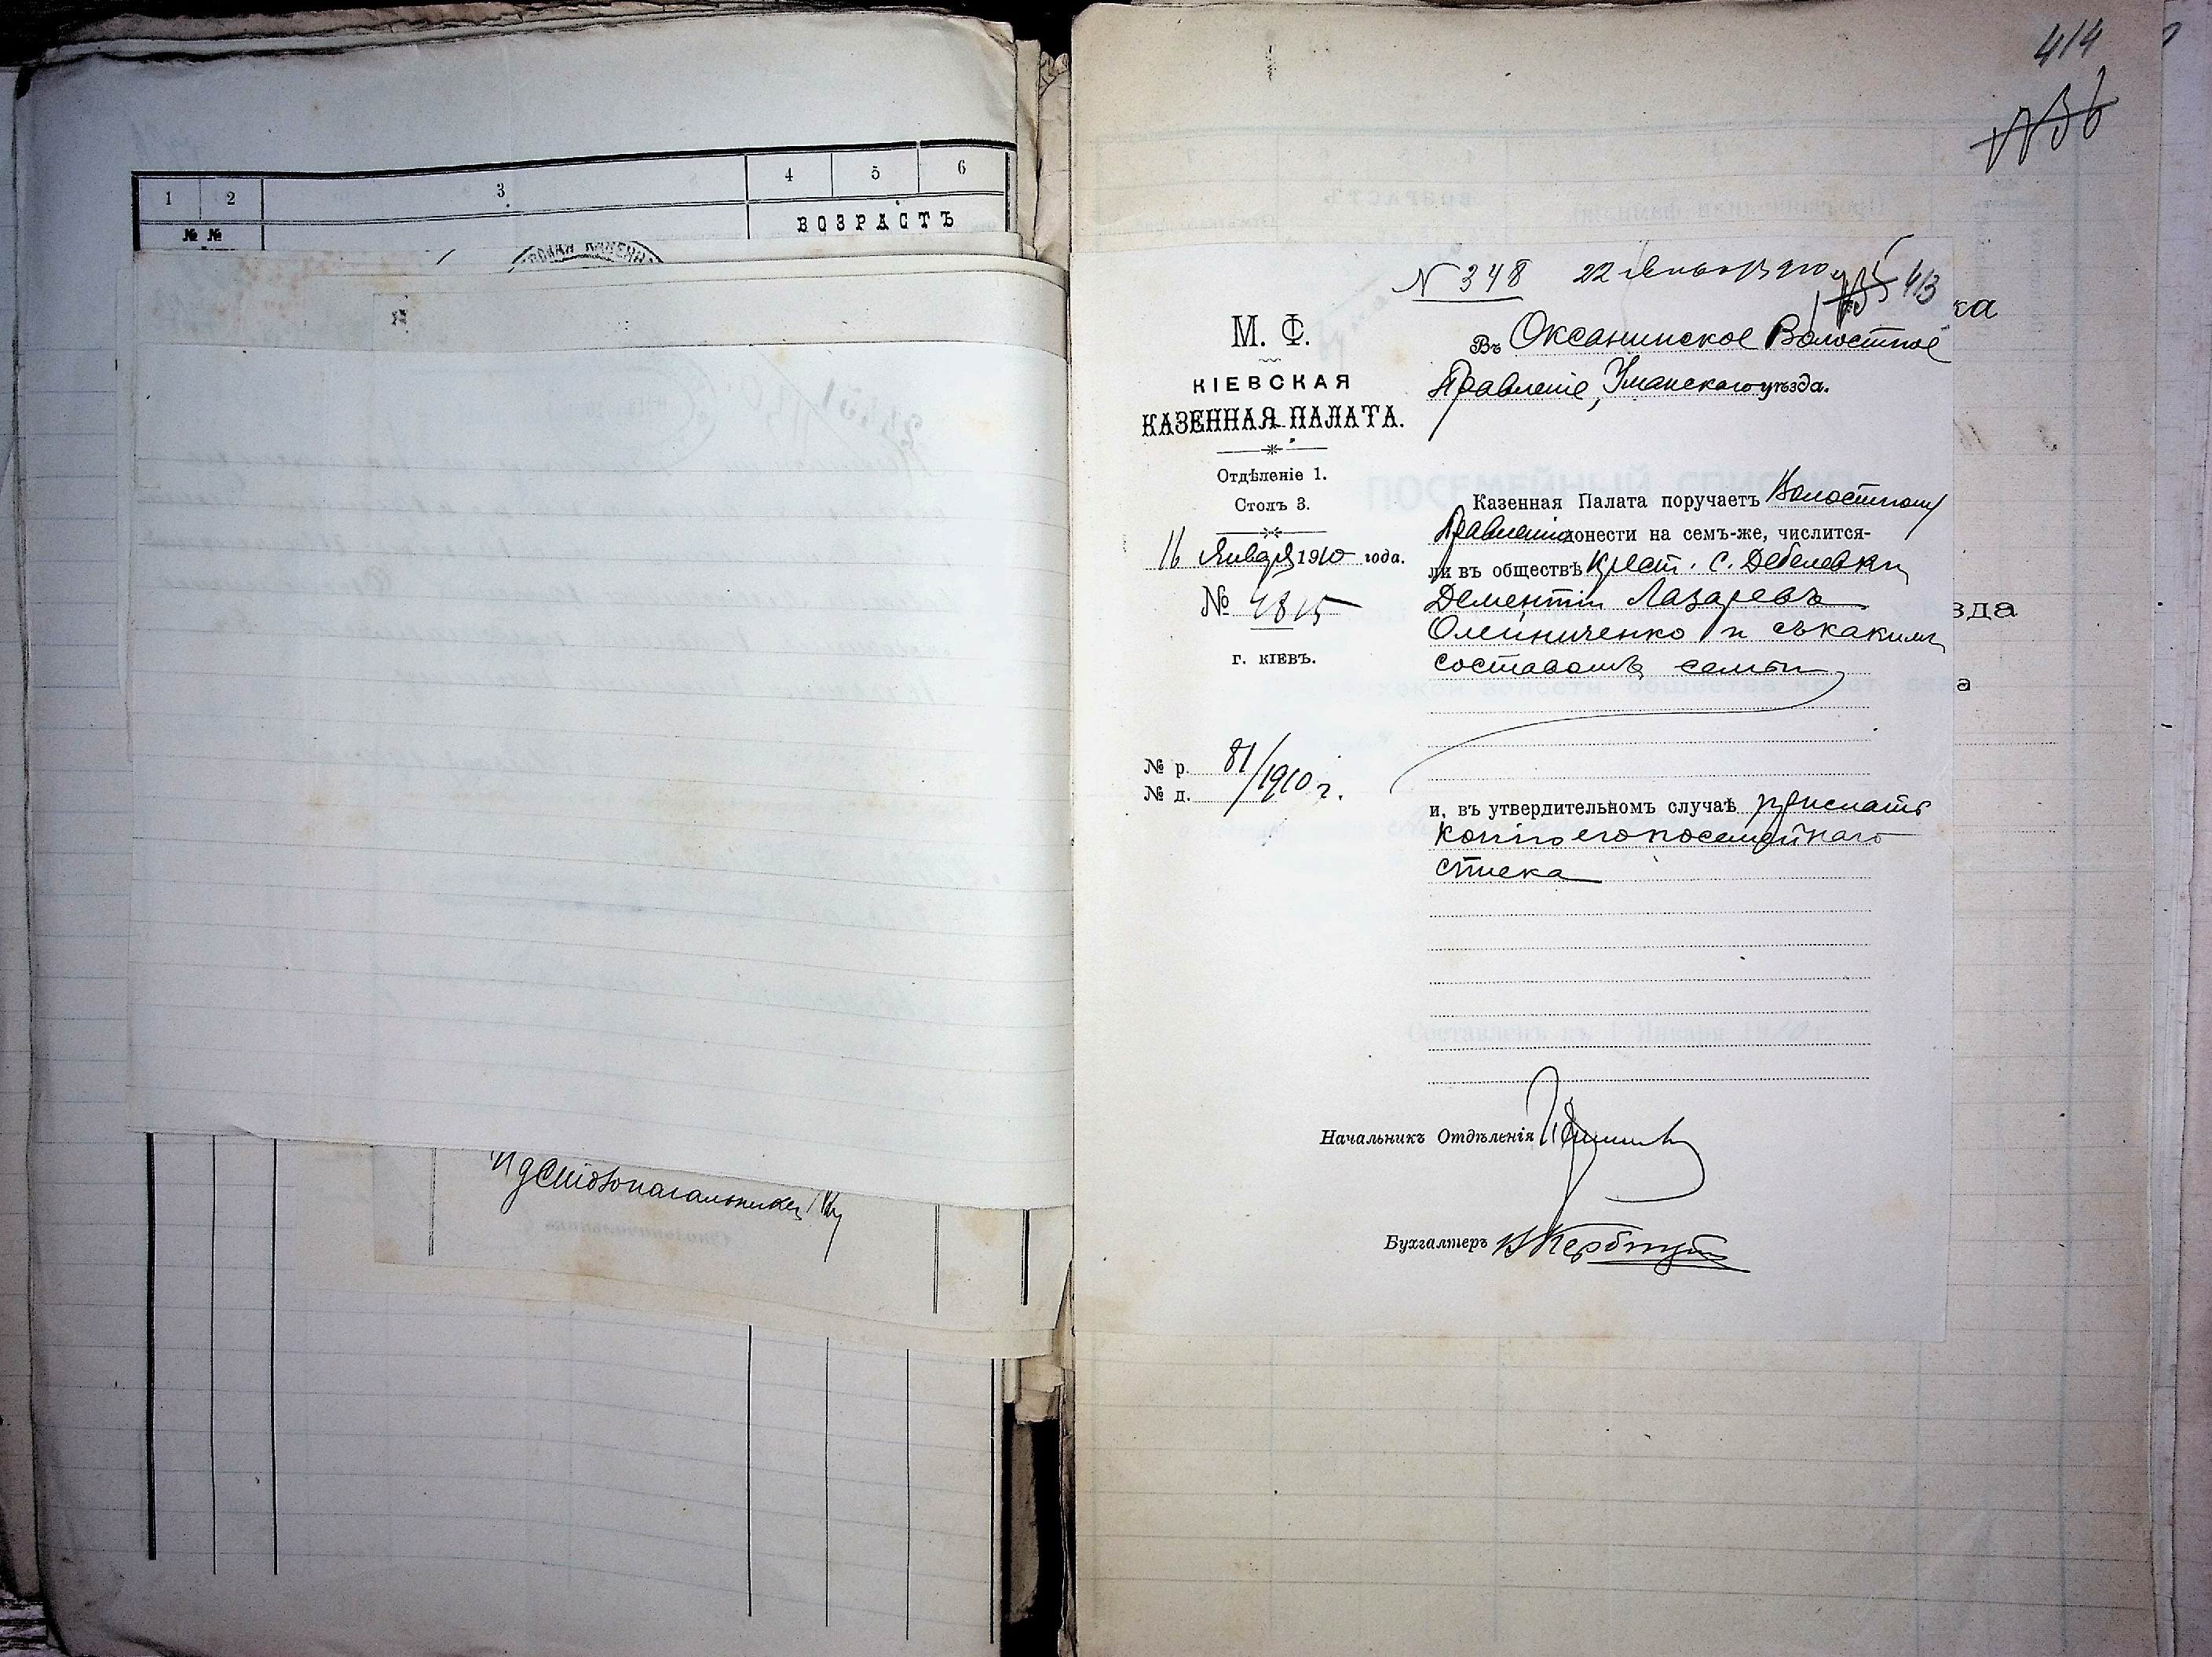 1 2 3 4 5 6
№ №
ВОЗРАСТЪ
414
№ 348 22 Января 910 г. 413
М. Ф.
КІЕВСКАЯ
КАЗЕННАЯ ПАЛАТА.
Отдѣленіе 1.
Столъ 3.
16 Января 1910 года.
№ 4815
г. КІЕВЪ.
№ р. 81/1910 г.
№ д.
Въ Оксанинское Волостное
Правленіе, Уманскаго уѣзда.
Казенная Палата поручаетъ Волостному
Правленію донести на семъ-же, числится-
ли въ обществѣ крест. с.
Дементій Лазаревъ
Олейниченко и съ какимъ
составомъ семьи
и, въ утвердительномъ случаѣ прислать
копію его посемейнаго
списка
Начальникъ Отдѣленія
Бухгалтеръ
ка
зда
а